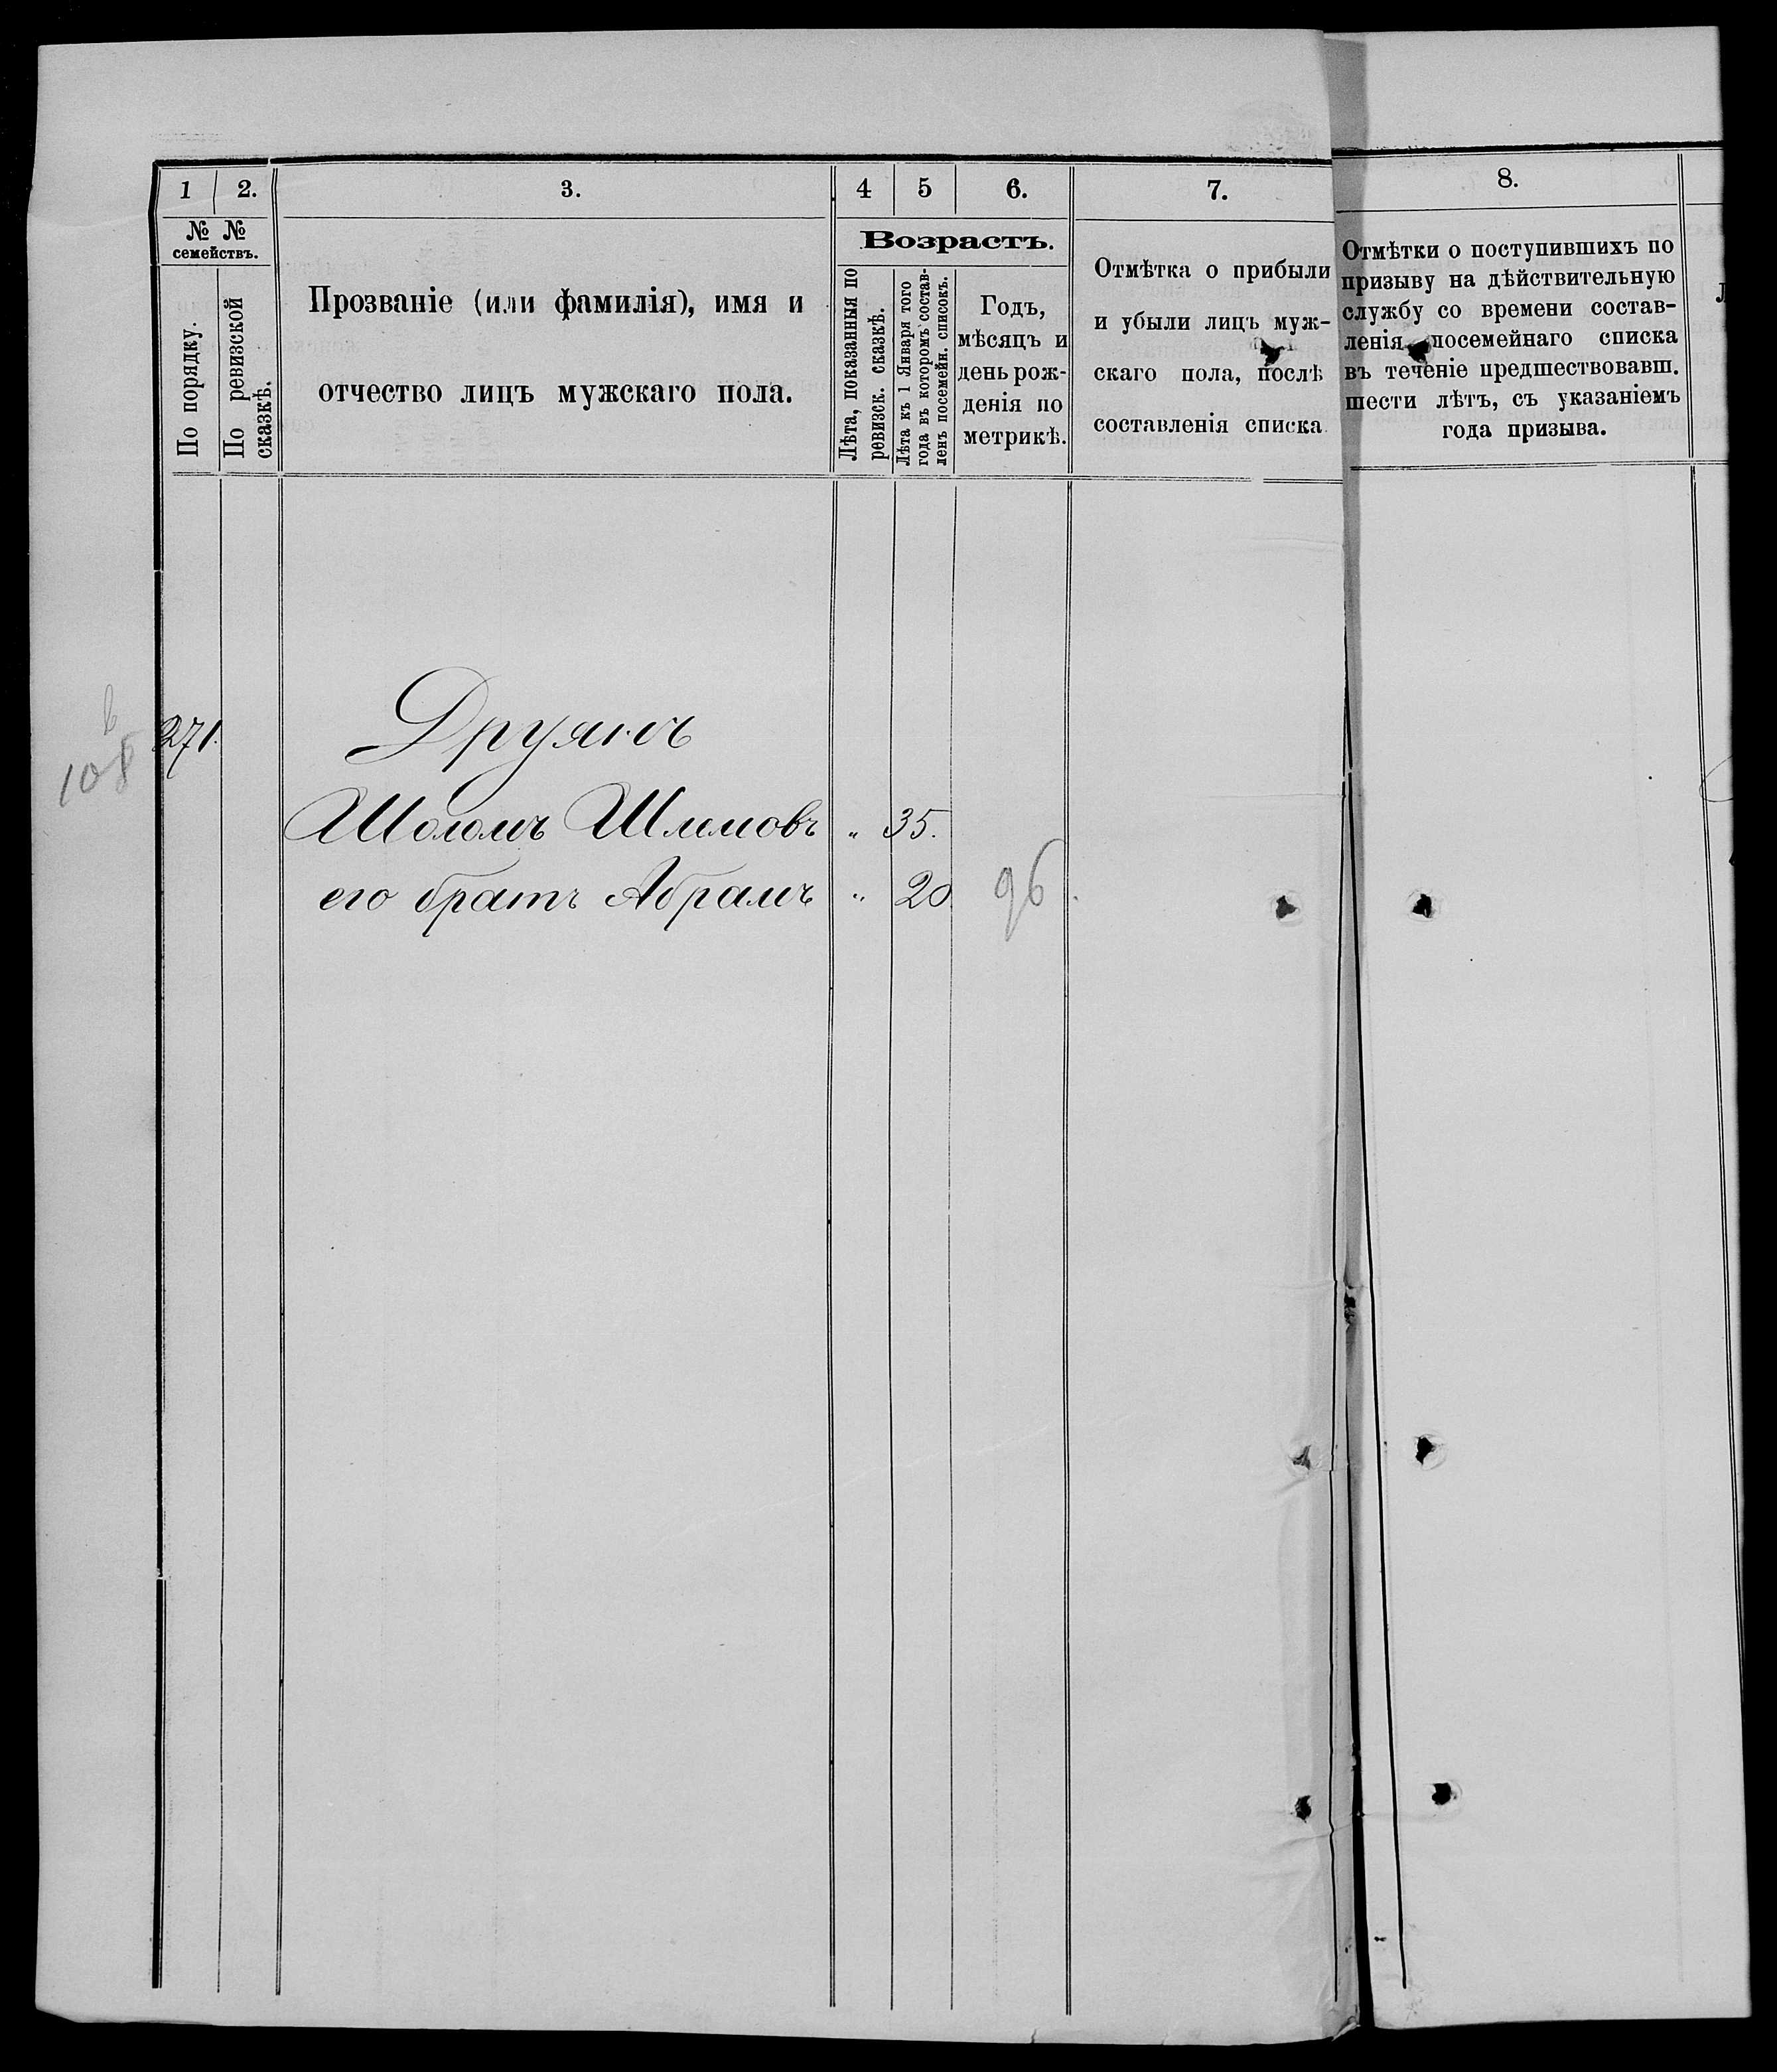 1 2. 3. 4 5 6. 7. 8.
№ №
семействъ.
По порядку.
По ревизской
сказкѣ.
Прозваніе (или фамилія), имя и
отчество лицъ мужскаго пола.
Возрастъ.
Лѣта, показанныя по
ревизск. сказкѣ.
Лѣта къ 1 Января того
года въ которомъ состав-
ленъ посемейн. списокъ.
Годъ,
мѣсяцъ и
день рож-
денія по
метрикѣ.
Отмѣтка о прибыли
и убыли лицъ муж-
скаго пола, послѣ
составленія списка
Отмѣтки о поступившихъ по
призыву на дѣйствительную
службу со времени состав-
ленія посемейнаго списка
въ теченіе предшествовавш.
шести лѣтъ, съ указаніемъ
года призыва.
271. Друянъ
108
Шоломъ Шлемовъ " 35.
его братъ Абрамъ " 20 96